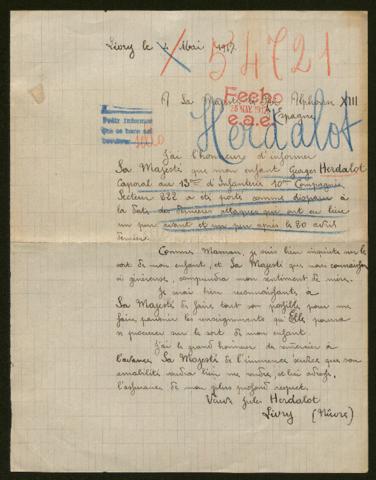 Livry le 4 Mai 1917.
54721
A Sa Majesté le Roi Alphonse XIII
d'Espagne
Fecho
MAY. 1917
e.a.e.
Pedir informes
Herdalot
J'ai l'honneur d'informer
Sa Majesté que mon enfant Georges Herdalot
Caporal au 13me d'Infanterie 10me Compagnie
Secteur 222 a été porté comme disparu à
la suite des dernières attaques qui ont eu lieu
un peu avant et un peu après le 20 avril
dernier.
Comme Maman, je suis bien inquiète sur le
sort de mon enfant, et Sa Majesté que nous connaissons
si généreuse, comprendra mon sentiment de mère.
Je serai bien reconnaissante à
Sa Majesté de faire tout son possible pour me
faire parvenir les renseignements qu'Elle pourra
se procurer sur le sort de mon enfant.
J'ai le grand honneur de remercier à
l'avance Sa Majesté de l'immense service que son
amabilité voudra bien me rendre, et lui adresse
l'assurance de mon plus profond respect.
Veuve Jules Herdalot
Livry (Nièvre)